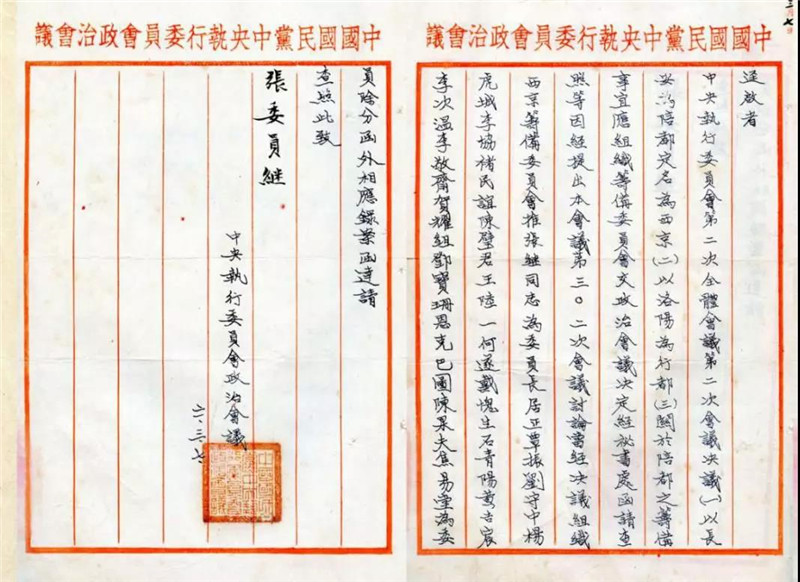 中國國民黨中央執行委員會政治會議
逕啟者
中央執行委員會第二次全體會議第二次會議決議(一)以長
安為陪都定名為西京(二)以洛陽為行都(三)關於陪都之籌備
事宜應組織籌備委員會交政治會議決定經秘書處函請查
照等因經提出本會議第三〇二次會議討論當經決議組織
西京籌備委員會推張繼同志為委員長居正覃振劉守中楊
虎城李協褚民誼陳璧君王陸一何遂戴愧生石青陽黃吉宸
李次溫李敬齋賀耀組鄧寶珊恩克巴圖陳果夫焦易堂為委
中國國民黨中央執行委員會政治會議
員除分函外相應錄案函達請
查照此致
張委員繼
中央執行委員會政治會議